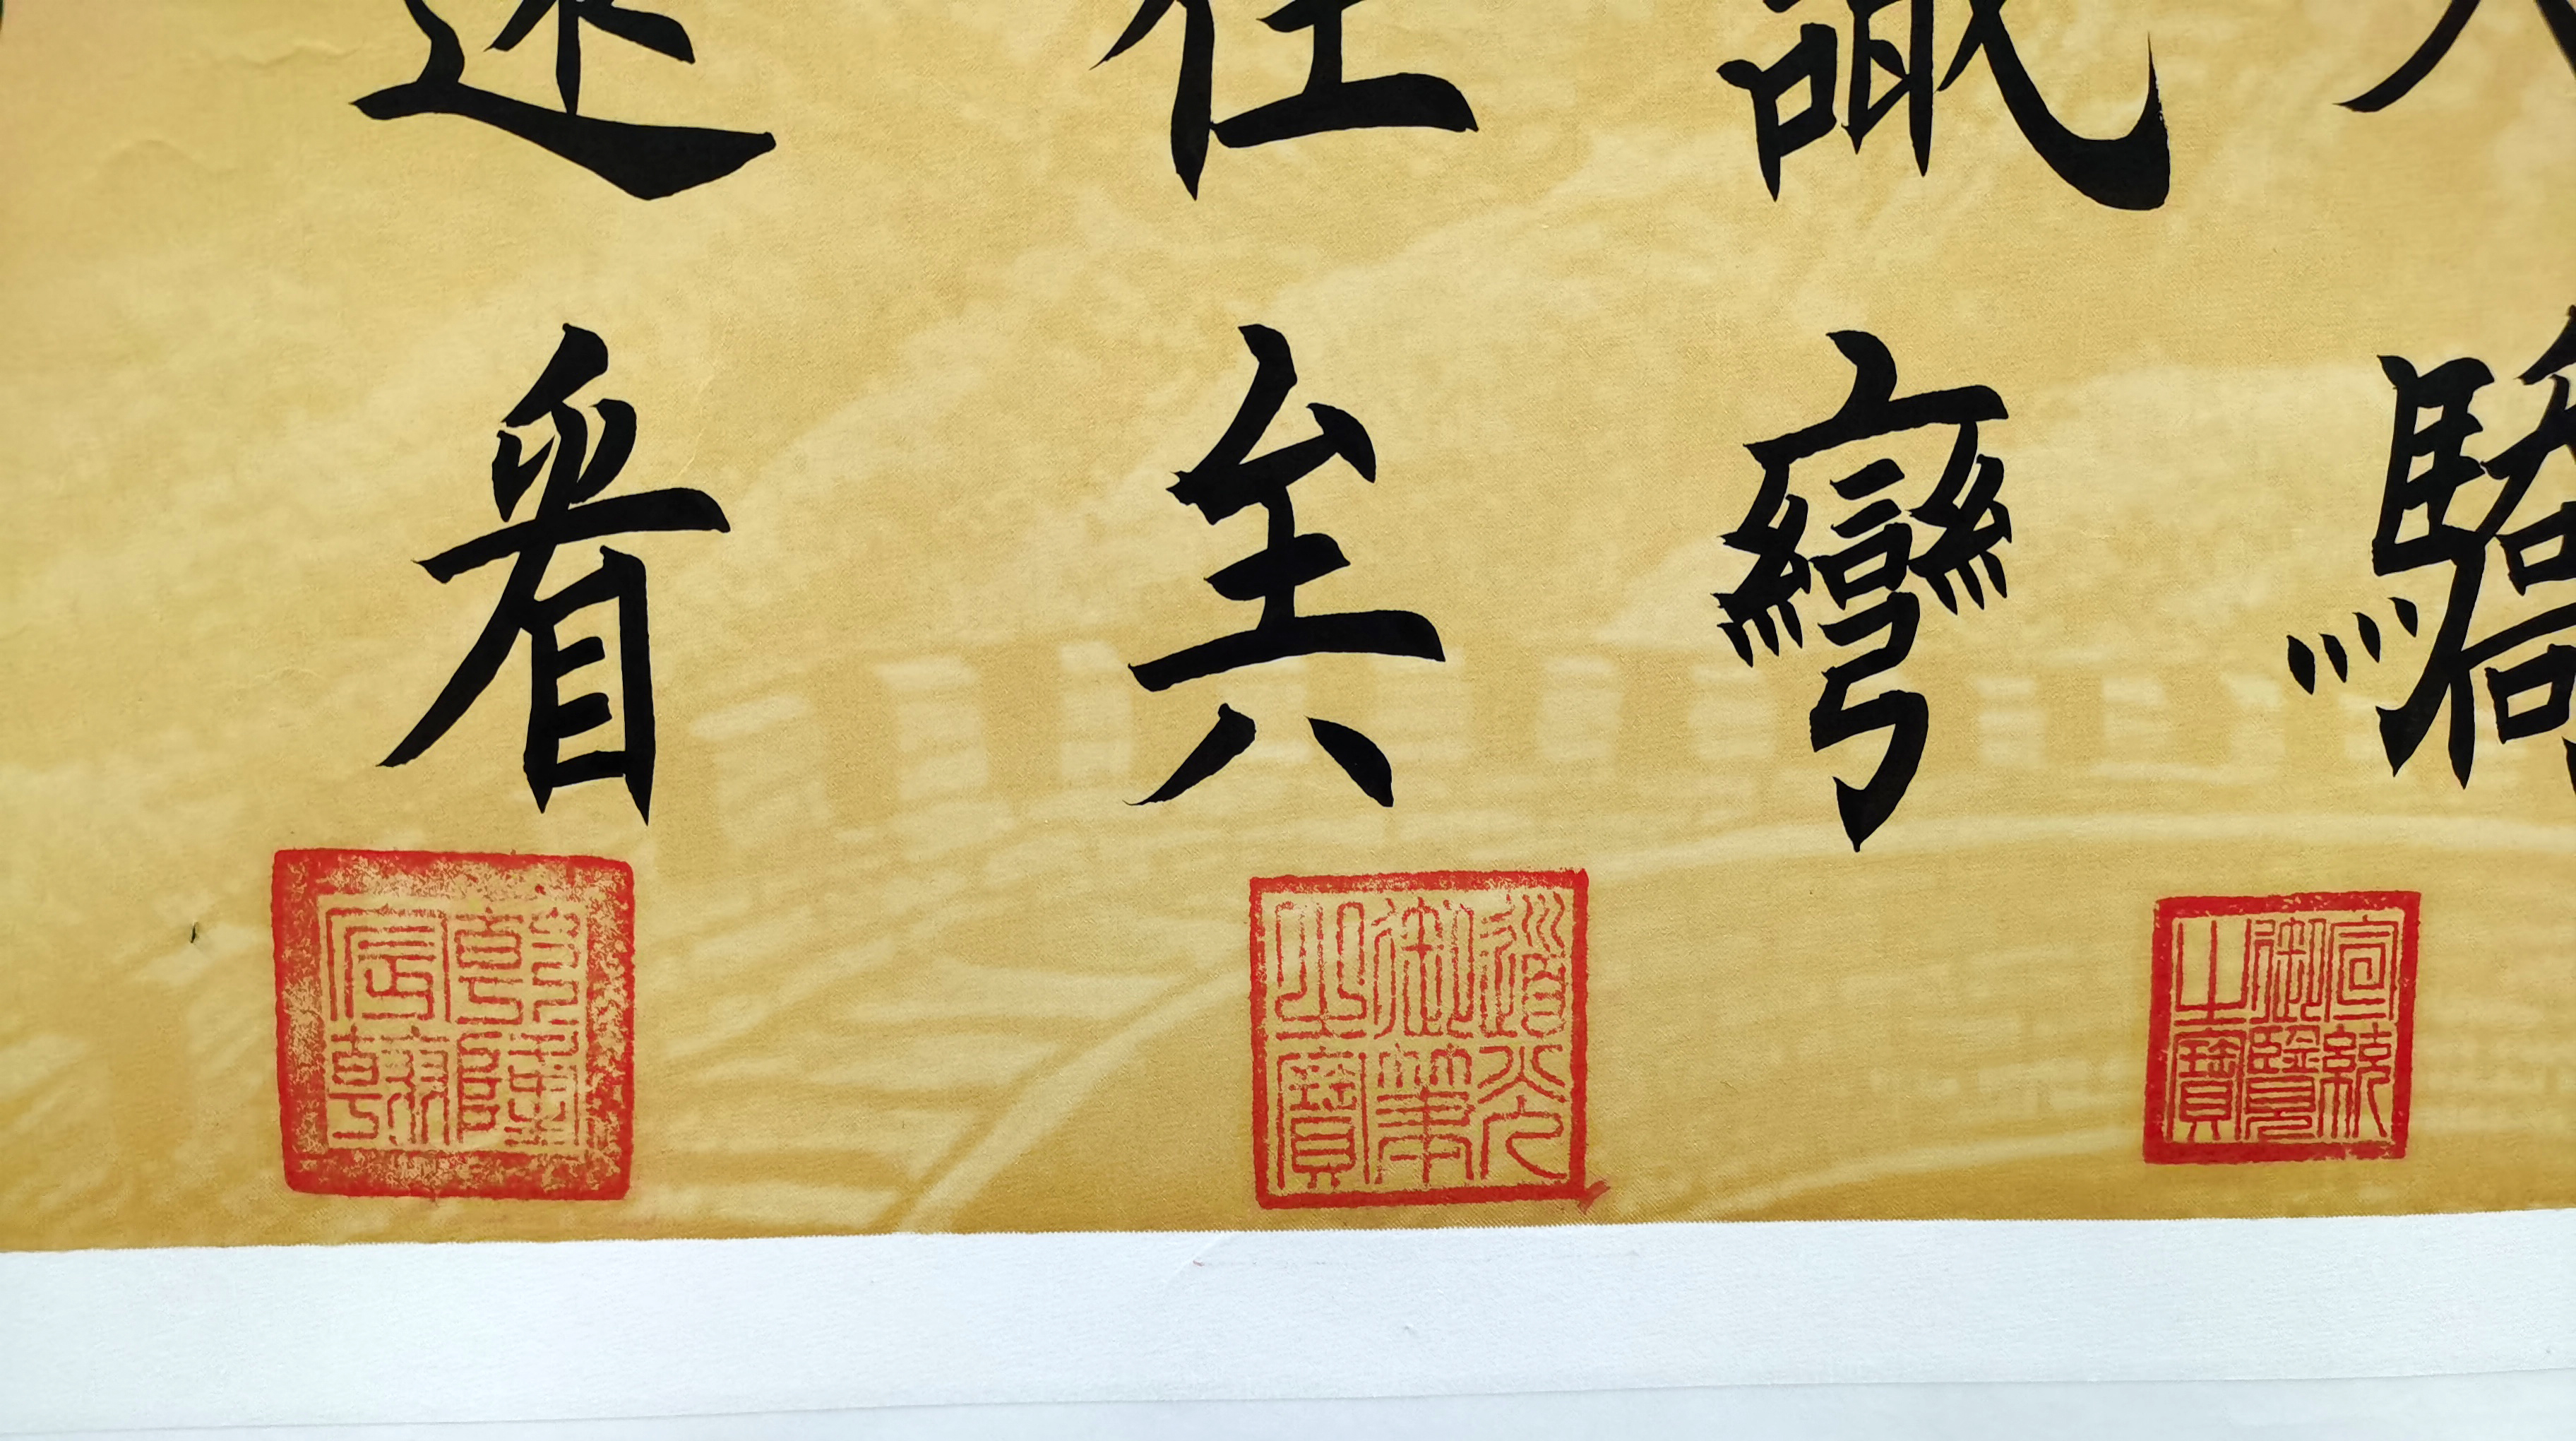 驕
識彎
往矣
还看
宣統御覽之寶
道光御筆之寶
乾隆宸翰